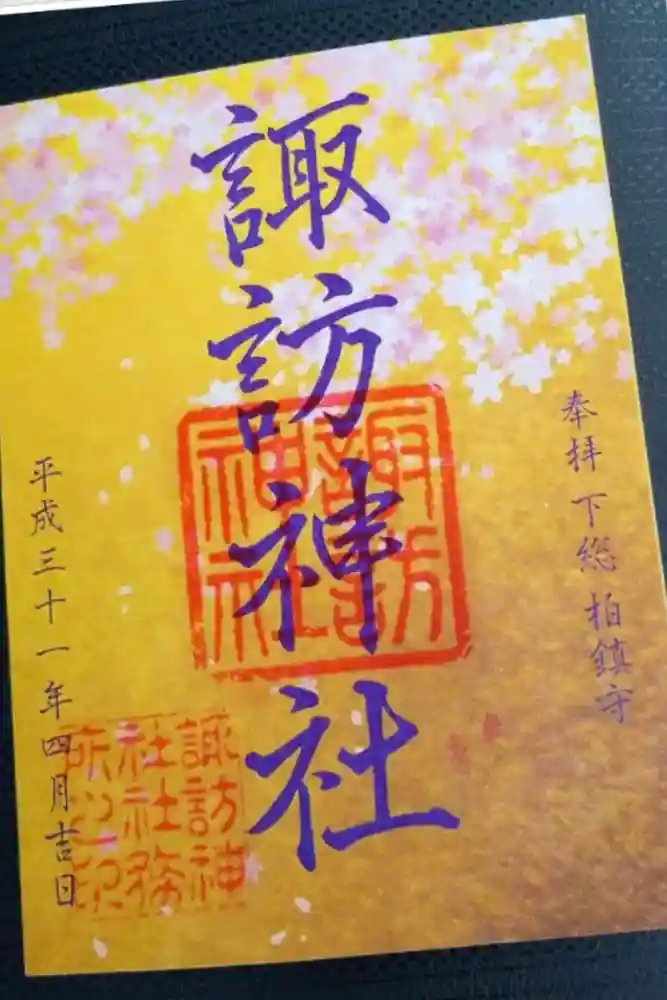 奉拝 下総 柏鎮守
諏訪神社
平成三十一年四月吉日
諏訪
神社
諏訪神
社社務
所之印